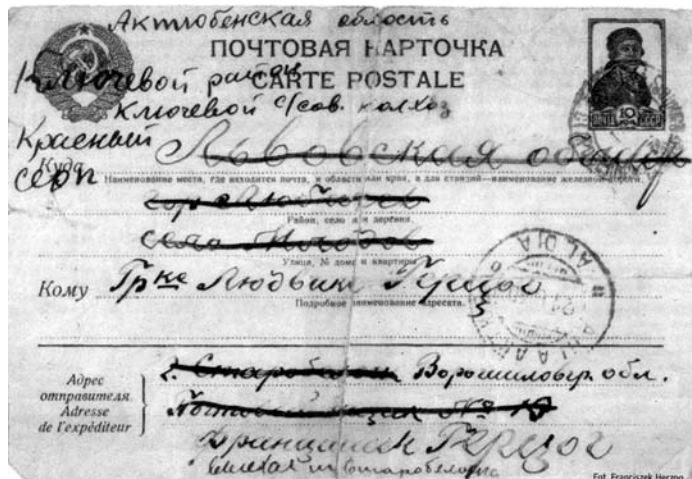 Актюбенская область
ПОЧТОВАЯ КАРТОЧКА
Ключевой район
CARTE POSTALE
Ключевой с/сов. колхоз
Красный
серп
10
ПОЧТА СССР
Куда
Львовская область
Наименование места, где находится почта, и области или края, а для станций—наименование железной дороги.
Район, село или деревня.
село
Улица, № дома и квартиры.
Кому Гр-ке Людвик Герцог
Подробное наименование адресата.
Адрес
отправителя
Adresse
de l'expéditeur
г. Старобельск Ворошиловгр. обл.
Почтовый ящик № 15
Францишек Герцог
Fot. Franciszek Herzog